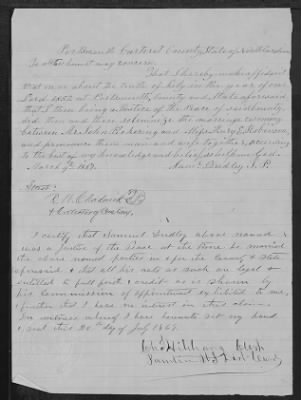 Portsmouth Carteret County State of North Carolina
To all whom it may concern.
That I hereby make affidavit
that on or about the tenth of July in the year of our
Lord 1852 at Portsmouth, County and State aforesaid
that I then being a Justice of the Peace
did then and there solemnize the marriage ceremony
between Mr John and Miss Mary E. Robinson
and pronounce them man and wife together, according
to the best of my knowledge and belief so help me God.
March 9th 1867. Saml Dudley J.P.
Attest
Chadwick
I certify that Samuel Dudley above named
was a Justice of the Peace at the time he married
the above named parties in & for the County & State
aforesaid & that all his acts as such are legal &
entitled to full faith & credit as is shown by
his Commission of appointment exhibited to me,
further that I have no interest in this claim.
In witness whereof I have hereunto set my hand
and this 20th day of July 1867.
Clerk